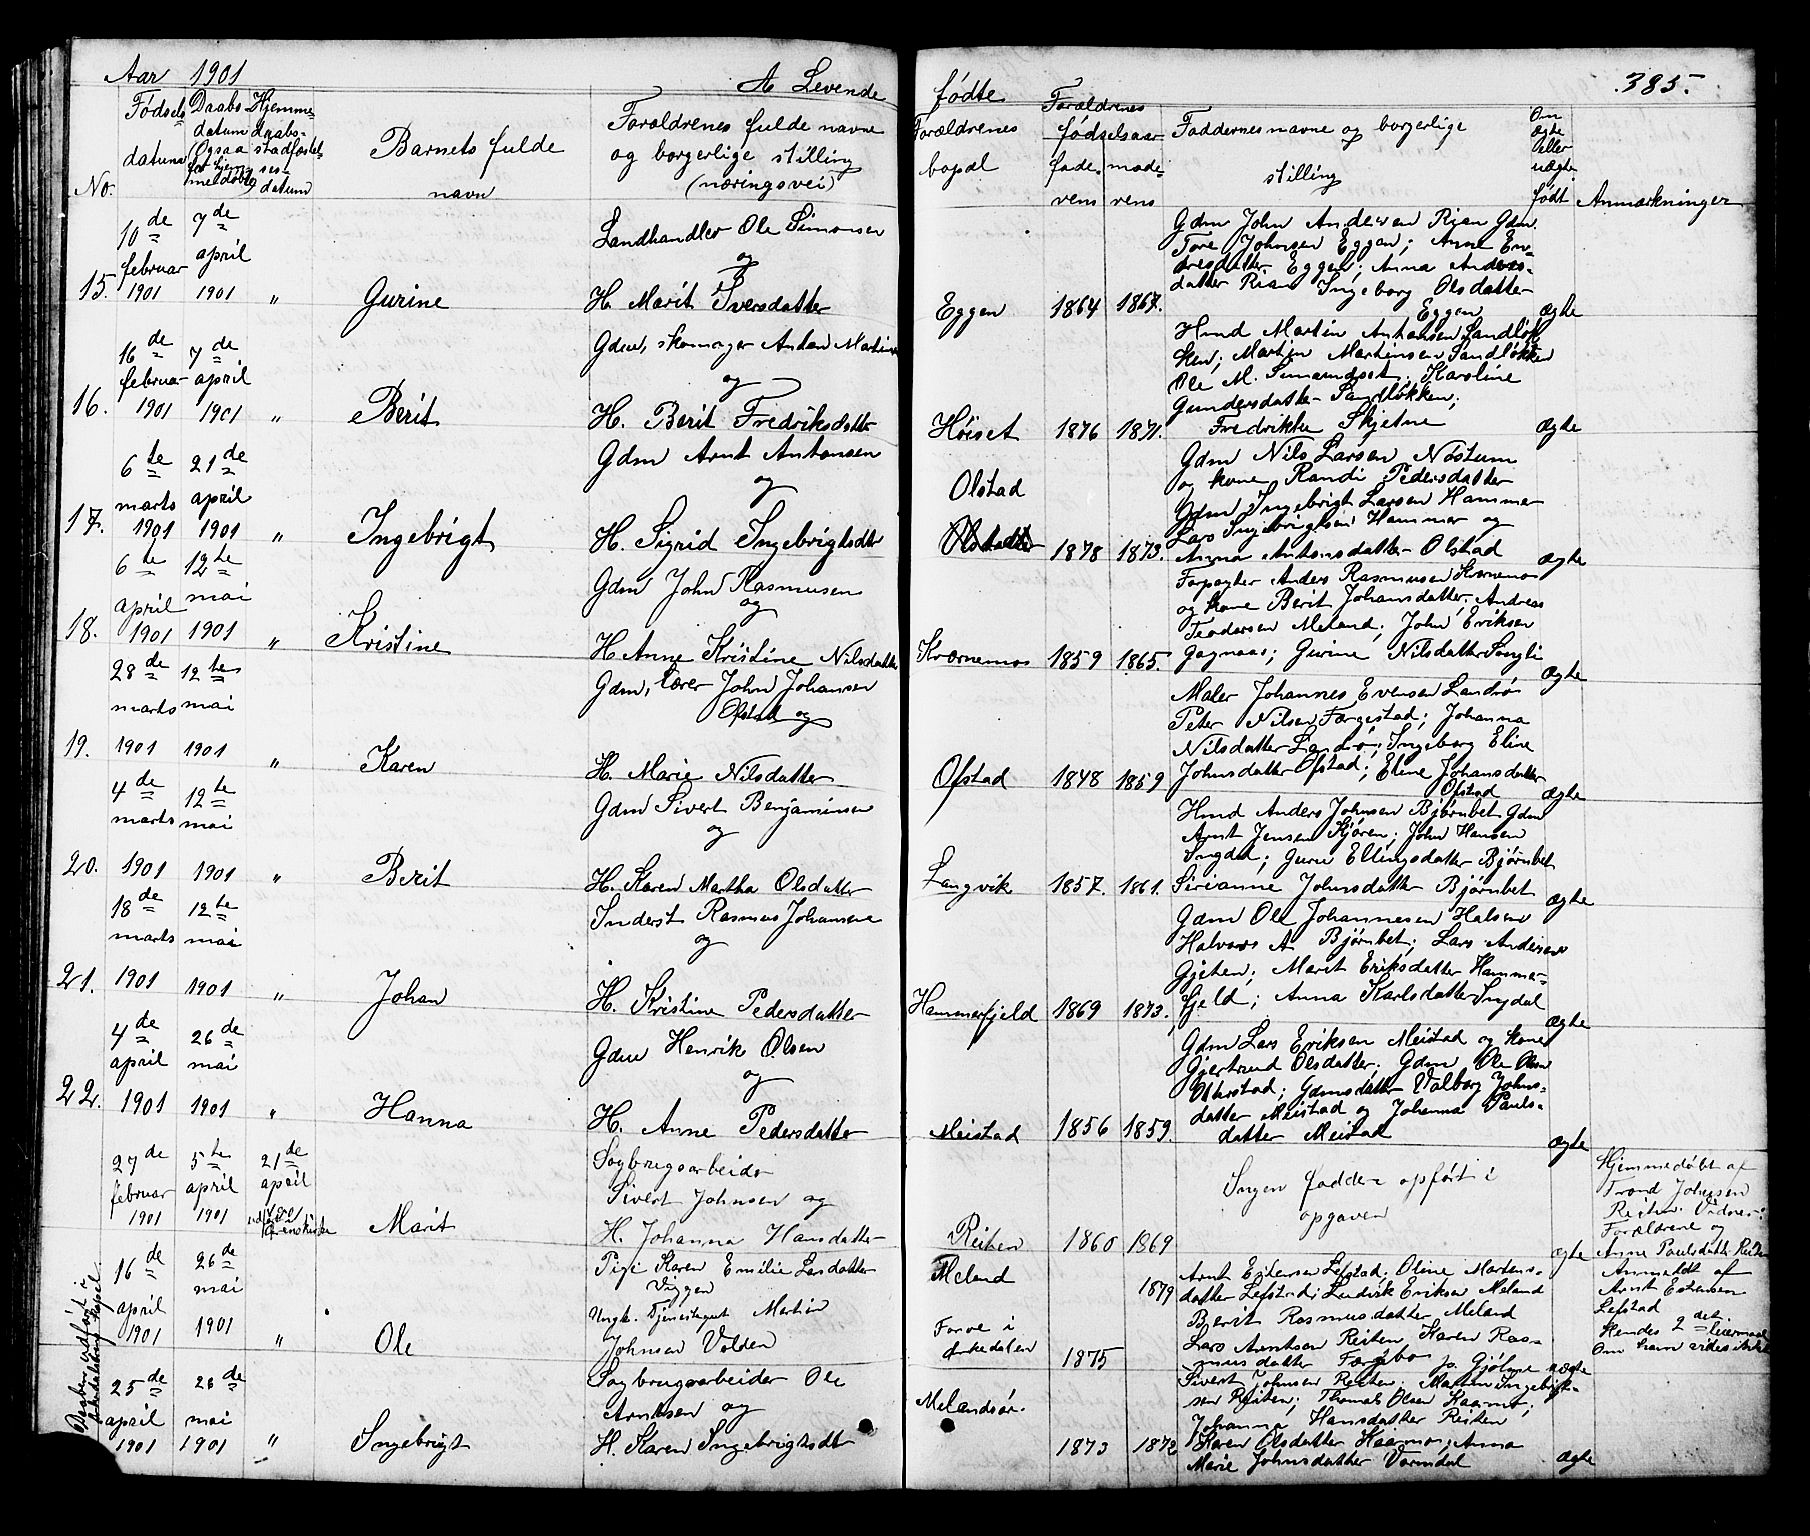 Aar 1901
A Levende
fødte
385.
No.
Fødsels
datum
Daabs
datum
(Ogsaa
for hjem-
medøbte)
Hjemme-
daabs-
stadfæstel-
ses-
datum
Barnets fulde
navn
Forældrenes fulde navne
og borgerlige stilling
(næringsvei)
Forældrenes
bopæl
Forældrenes
fødselsaar
fade-
rens
mode-
rens
Faddernes navne og borgerlige
stilling
Om
ægte
eller
uægte
født
Anmærkninger
15.
10de februar 1901
7de april 1901
"
Gurine
Landhandler Ole Simonsen
og
H. Marit Iversdatter
Eggen
1864
1867.
Gdm John Andersen Rian Gdm.
Tore Johnsen Eggen; Anne En-
dresdatter Eggen; Anna Anders-
datter Rian Ingeborg Olsdatter
Eggen
Ægte
16.
16de februar 1901
7de april 1901
"
Berit
Gdm, skomager Anton Martins
og
H. Berit Fredriksdatter
Høiset
1876
1871.
Hmd Martin Antonsen Sandløk
ken; Martin Martinsen Sandløkken
Ole M. Simundset; Karoline
Gundersdatter Sandløkken;
Fredrikke Skjetne
Ægte
17.
6te marts 1901
21de april 1901
"
Ingebrigt
Gdm Arnt Antonsen
og
H. Sigrid Ingebrigtsdtr
Olstad
1878
1873.
Gdm Nils Larsen Nostum
og kone Randi Pedersdatter
Gdm Ingebrigt Larsen Hammer
Lars Ingebrigtsen Hammer og
Anna Antonsdatter Olstad
Ægte
18.
6te april 1901
12te mai 1901
"
Kristine
Gdm John Rasmusen
og
H Anne Kristine Nilsdatter
Kværnemos
1859
1865.
Forpagter Anders Rasmusen Kværnemo
og kone Berit Johansdatter; Andreas
Teodorsen Meland; John Eriksen
Gagnaas; Gurine Nilsdatter Songli
Ægte
19.
28de marts 1901
12te mai 1901
"
Karen
Gdm, lærer John Johansen
Ofstad og
H. Marie Nilsdatter
Ofstad
1848
1859
Maler Johannes Evensen Landrø
Peter Nilsen Fargestad; Johanna
Nilsdatter Landrø; Ingeborg Eline
Johnsdatter Ofstad; Eline Johansdatter
Ofstad
Ægte
20.
4de marts 1901
12te mai 1901
"
Berit
Gdm Sivert Benjaminsen
og
H. Karen Martha Olsdatter
Langvik
1857.
1861.
Hmd Anders Johnsen Bjørnbet Gdm
Arnt Jensen Kjøren; John Hansen
Ingdal; Guru Ellingsdatter Bjørnbet
Sirianne Johnsdatter Bjørnbet
Ægte
21.
18de marts 1901
12te mai 1901
"
Johan
Inderst Rasmus Johansen
og
H. Kristine Pedersdatter
Hammerfjeld
1869
1873.
Gdm Ole Johannesen Halsen
Halvors A Bjørnbet; Lars Andersen
Gjeten; Maret Eriksdatter Hammer-
fjeld; Anna Karlsdatter Ingdal
Ægte
22.
4de april 1901
26de mai 1901
"
Hanna
Gdm Henrik Olsen
og
H. Anne Pedersdatter
Meistad
1856
1859.
Gdm Lars Eriksen Meistad og kone
Gjertrud Olsdatter; Gdm Ole Olsen
Gdmsdatter Valborg Johns-
datter Meistad og Johanna Pauls-
datter Meistad
Ægte
27de februar 1901
5te april 1901
21de april
Marit
Sagbrugsarbeider
Sivert Johnsen og
H. Johanna Hansdatter
Reiten
1860
1869
Ingen fadder opført i
opgaven
Ægte
Hjemmedøbt af
Trond Johnsen
Reiten. Vidner:
Forældrene og
Anne Paulsdatter Reiten
Daaben udført i
16de april 1901
26de mai 1901
"
Ole
Pige Karen Emilie Larsdatter
Viggen
Ungk. Tjenestegut Martin
Johnsen Volden
Meland
Forve i
Orkedalen
1875
1879
Arnt Estensen Lefstad; Oline Martens-
datter Lefstad; Ludvik Eriksen Meland
Berit Rasmusdatter Meland
Lars Arntsen Reiten Karen Ras-
musdatter
uægte
Anmeldt af
Arnt Estensen
Lefstad
Hendes 2det leiermaal
25de april 1901
26de mai 1901
"
Ingebrigt
Sagbrugsarbeider Ole
Arntsen og
H. Karen Ingebrigtsdtr
Melandsør.
1873
1872
Sivert Johnsen Reiten; Martin Ingebrigt-
sen Reiten; Thomas Olsen Kaamo;
Johanna Hansdatter Reiten
Karen Olsdatter Kaamo; Anna
Marie Johnsdatter Vormdal
Ægte